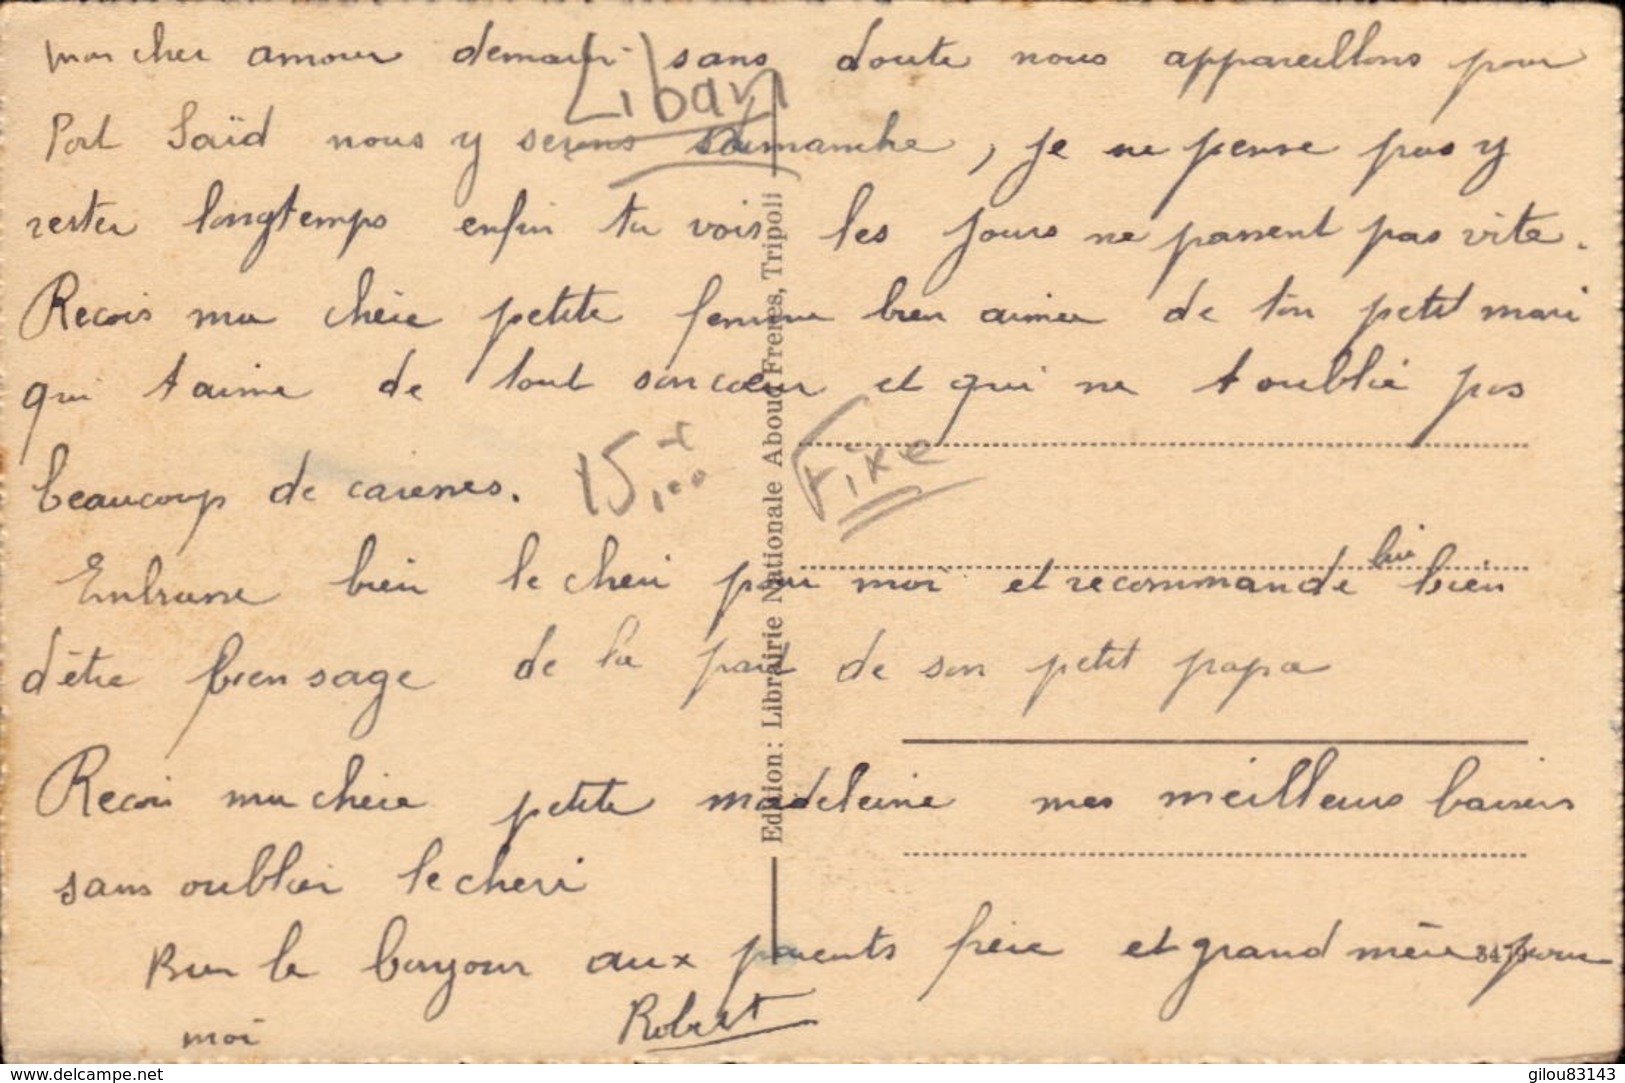 mon cher amour demain sans doute nous appareillons pour
Liban
Port Saïd nous y serons dimanche, je ne pense pas y
rester longtemps enfin tu vois les jours ne passent pas vite.
Recois ma chère petite femme bien aimée de ton petit mari
qui t aime de tout son cœur et qui ne t oublie pas
beaucoup de caresses.
15,00
Fixe
Embrasse bien le cheri pour moi et recommande lui bien
d'être bien sage de la part de son petit papa
Recois ma chère petite madeleine mes meilleurs baisers
sans oublier le cheri
Bien le bonjour aux parents frère et grand mère pour
moi
Robert
Edition: Librairie Nationale Aboud Freres, Tripoli
www.delcampe.net
gilou83143